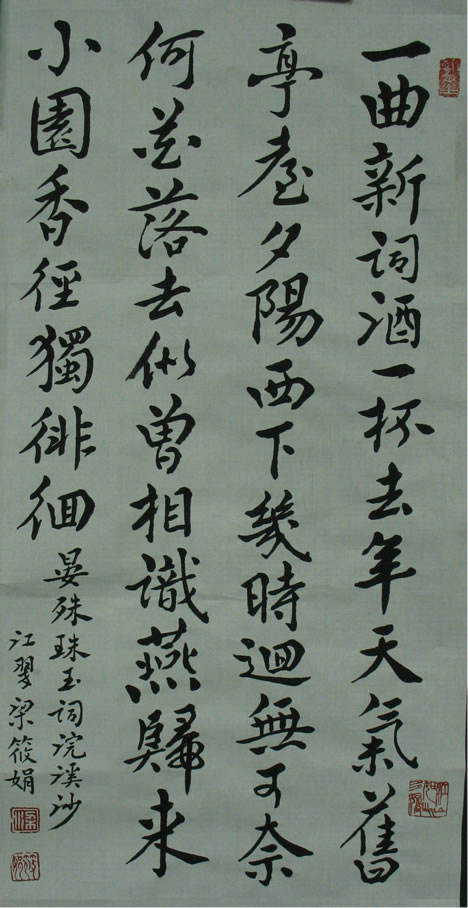 一曲新詞酒一杯去年天氣舊
亭臺夕陽西下幾時迴無可奈
何花落去似曾相識燕歸来
小園香徑獨徘徊
晏殊珠玉詞浣溪沙
江翠梁筱娟